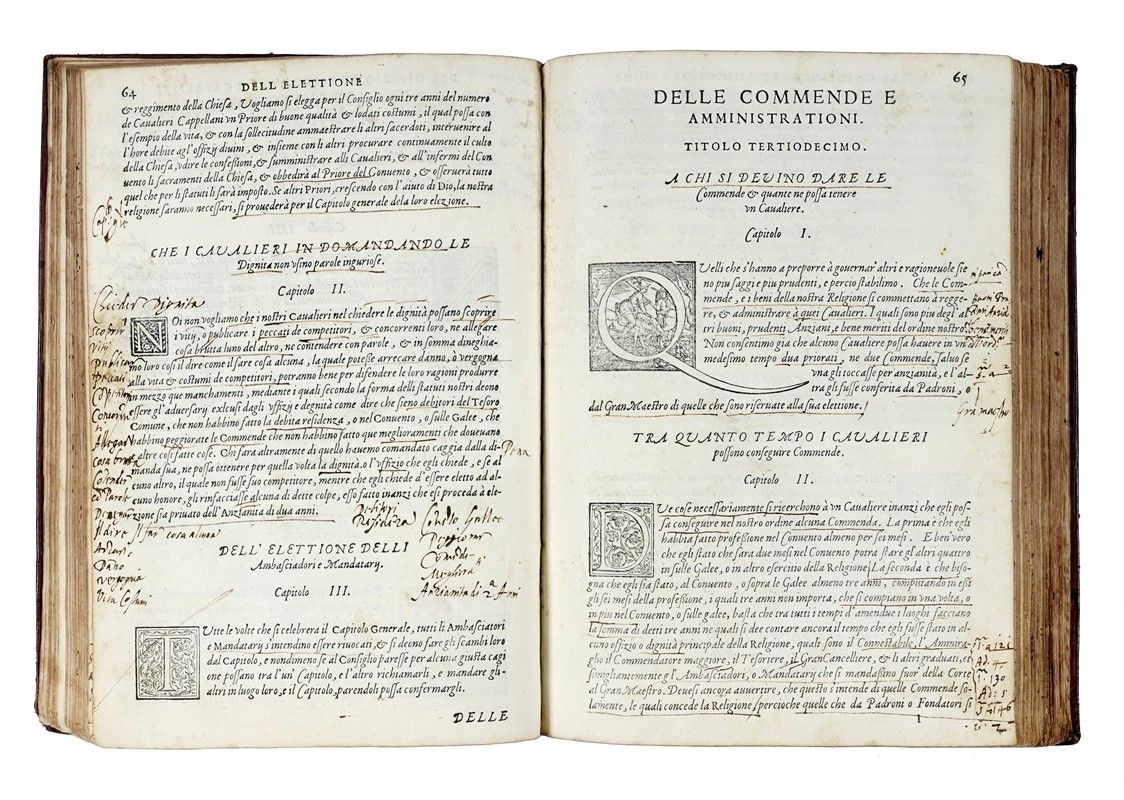 64
DELL ELETTIONE
& reggimento della Chiesa, Vogliamo si elegga per il Consiglio ogni tre anni del numero
de Cavalieri Cappellani vn Priore di buone qualità & lodati costumi, il qual possa con
l'esempio della vita, & con la sollecitudine ammaestrare li altri sacerdoti, intervenire al
l'hore debite agl'offizy divini, & insieme con li altri procurare continuamente il culto
della Chiesa, vdire le confeßioni, & sumministrare alli Cavalieri, & all'infermi del Con
vento li sacramenti della Chiesa, & obbedirà al Priore del Convento, & osserverà tutto
quel che per li statuti li sarà imposto. Se altri Priori, crescendo con l'aiuto di Dio, la nostra
religione saranno necessari, si provederà per il Capitolo generale de la loro elezione.
CHE I CAVALIERI IN DOMANDANDO LE
Dignita non vsino parole inguriose.
Capitolo II.
Chieder Dignita
NOi non vogliamo che i nostri Cavalieri nel chiedere le dignità possano scoprire
i vity, o publicare i peccati de competitori, & concorrenti loro, ne allegare
cosa brutta l'uno del altro, ne contendere con parole, & in somma dineghia-
mo loro così il dire come il fare cosa alcuna, la quale potesse arrecare danno, ò vergogna
alla vita & costumi de competitori, potranno bene per difendere le loro ragioni produrre
in mezzo que manchamenti, mediante i quali secondo la forma delli statuti nostri deono
essere gl'adversary exclusi dagli vffizy e degnità come dire che sieno debitori del Tesoro
Comune, che non habbino fatto la debita residenza, o nel Convento, o sulle Galee, che
habbino peggiorate le Commende che non habbino fatto que miglioramenti che dovevano
& altre cosi fatte cose. Chi fara altramente di quello havemo comandato caggia dalla di-
manda sua, ne possa ottenere per quella volta la dignità, o l'vffizio che egli chiede, e se al
cuno altro, il quale non fusse suo competitore, mentre che egli chiede d'essere eletto ad al-
cuno honore, gli rinfacciasse alcuna di dette colpe, esso fatto inanzi che si proceda à ele-
zione sia privato dell'Anzianita di due anni.
Pena
Scoprir
vitij
Cosa brutta
Il dire il far cosa alcuna
Dano
vergogna
Vita Costumi
Debitori
Residenza
DELL' ELETTIONE DELLI
Ambasciadori e Mandatary.
Capitolo III.
TVtte le volte che si celebrera il Capitolo Generale, tutti li Ambasciatori
e Mandatary s'intendino essere riuocati, & si deono fare gli scambi loro
dal Capitolo, e nondimeno se al Consiglio paresse per alcuna giusta cagi
one possano tra l'un Capitolo, e l'altro richiamarli, e mandare gli-
altri in luogo loro, e il Capitolo, parendoli possa confermargli.
DELLE
65
DELLE COMMENDE E
AMMINISTRATIONI.
TITOLO TERTIODECIMO.
A CHI SI DEVINO DARE LE
Commende & quante ne possa tenere
vn Cavaliere.
Capitolo I.
QVelli che s'hanno a preporre à governar' altri e ragionevole sie
no piu saggi e piu prudenti, e percio stabilimo. Che le Com-
mende, e i beni della nostra Religione si commettano à regge-
re, & administrare à quei Cavalieri. I quali sono piu degl' al
tri buoni, prudenti Anziani, e bene meriti del ordine nostro.
Non consentimo gia che alcuno Cavaliere possa havere in vn
medesimo tempo dua priorati, ne due Commende, salvo se
vna gli toccasse per anzianità, e l'al-
tra gli fusse conferita da Padroni, o
dal Gran Maestro di quelle che sono riservate alla sua elettione.
Gra maestro
TRA QUANTO TEMPO I CAVALIERI
possono conseguire Commende.
Capitolo II.
DVe cose necessariamente si ricerchono à vn Cavaliere inanzi che egli pos-
sa conseguire nel nostro ordine alcuna Commenda. La prima è che egli
habbia fatto profeßione nel Convento almeno per sei mesi. E ben vero
che egli stato che sara due mesi nel Convento potra stare gl'altri quattro
in sulle Galee, o in altro esercitio della Religione. La seconda è che biso-
gna che egli sia stato, al Convento, o sopra le Galee almeno tre anni, computando in essi
gli sei mesi della profeßione, i quali tre anni non importa, che si compiano in vna volta, o
in piu nel Convento, o sulle galee, basta che tra tutti i tempi d'amendue i luoghi facciano
la somma di detti tre anni ne quali si dee contare ancora il tempo che egli fusse stato in al-
cuno offizio o dignità principale della Religione, quali sono il Connestabile, l'Ammira-
glio il Commendatore maggiore, il Tesoriere, il Gran Cancelliere, & li altri graduati, et
simigliantemente gl'Ambasciadori, o Mandatary che si mandassino fuor della Corte
al Gran Maestro. Devesi ancora auvertire, che questo s'intende di quelle Commende so-
lamente, le quali concede la Religione, percioche quelle che da Padroni o Fondatori si